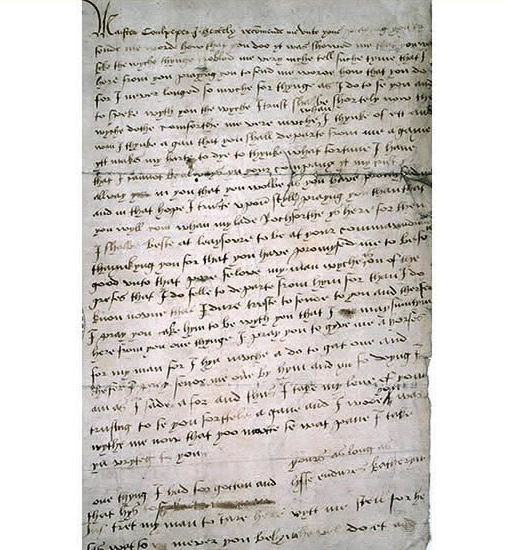 Master Coulpeper I hertely recomende me unto youe praying you to
sende me worde how that you doo yt was showed me that you was
seke the wyche thynge trobled me very muche tell suche tyme that I
here from you praying you to send me worde how that you do
for I never longed so muche for thynge as I do to se you and
to speke wyth you the wyche I trust shal be shortely now
wyche dothe comforthe me verie muche I thynke of ytt and
wan I thynke agan that you shall departe from me agane
ytt makes my harte to dye to thynke what fortune I have
that I cannot be always yn your company yt my
allway in you that you wolbe as you have promysed
and in that hope I truste upon styll praying you than that
you wyll com whan my lade Rochforthe ys here for then
I shalbe beste at leaysoure to be at your commaundment
thankyng you for that you have promysed me to be so
good unto that pore felow my man wyche is on of the
grefes that I do felle to departe from hym for than I do
know noone that I dare truste to sende to you and therfor
I pray you take hym to be wyth you that I may sumtym
here from you one thynge I pray you to geve me a horse
for my man for I hyd muche a do to gat one and
therfer I pray sende me one by hym and yn so doying I
am as I sade afor and thus I take my leve of you
trusting to se you shortele agane and I wode you was
wythe me now that you maitte se wat pane I take
yn wryteg to you
yours as long as
lyffe endures Katheryn
one thyng I had forgotten and
that hys to my man to tare here wyt me still for he
sas wat so mever you bed hym he wel do et and